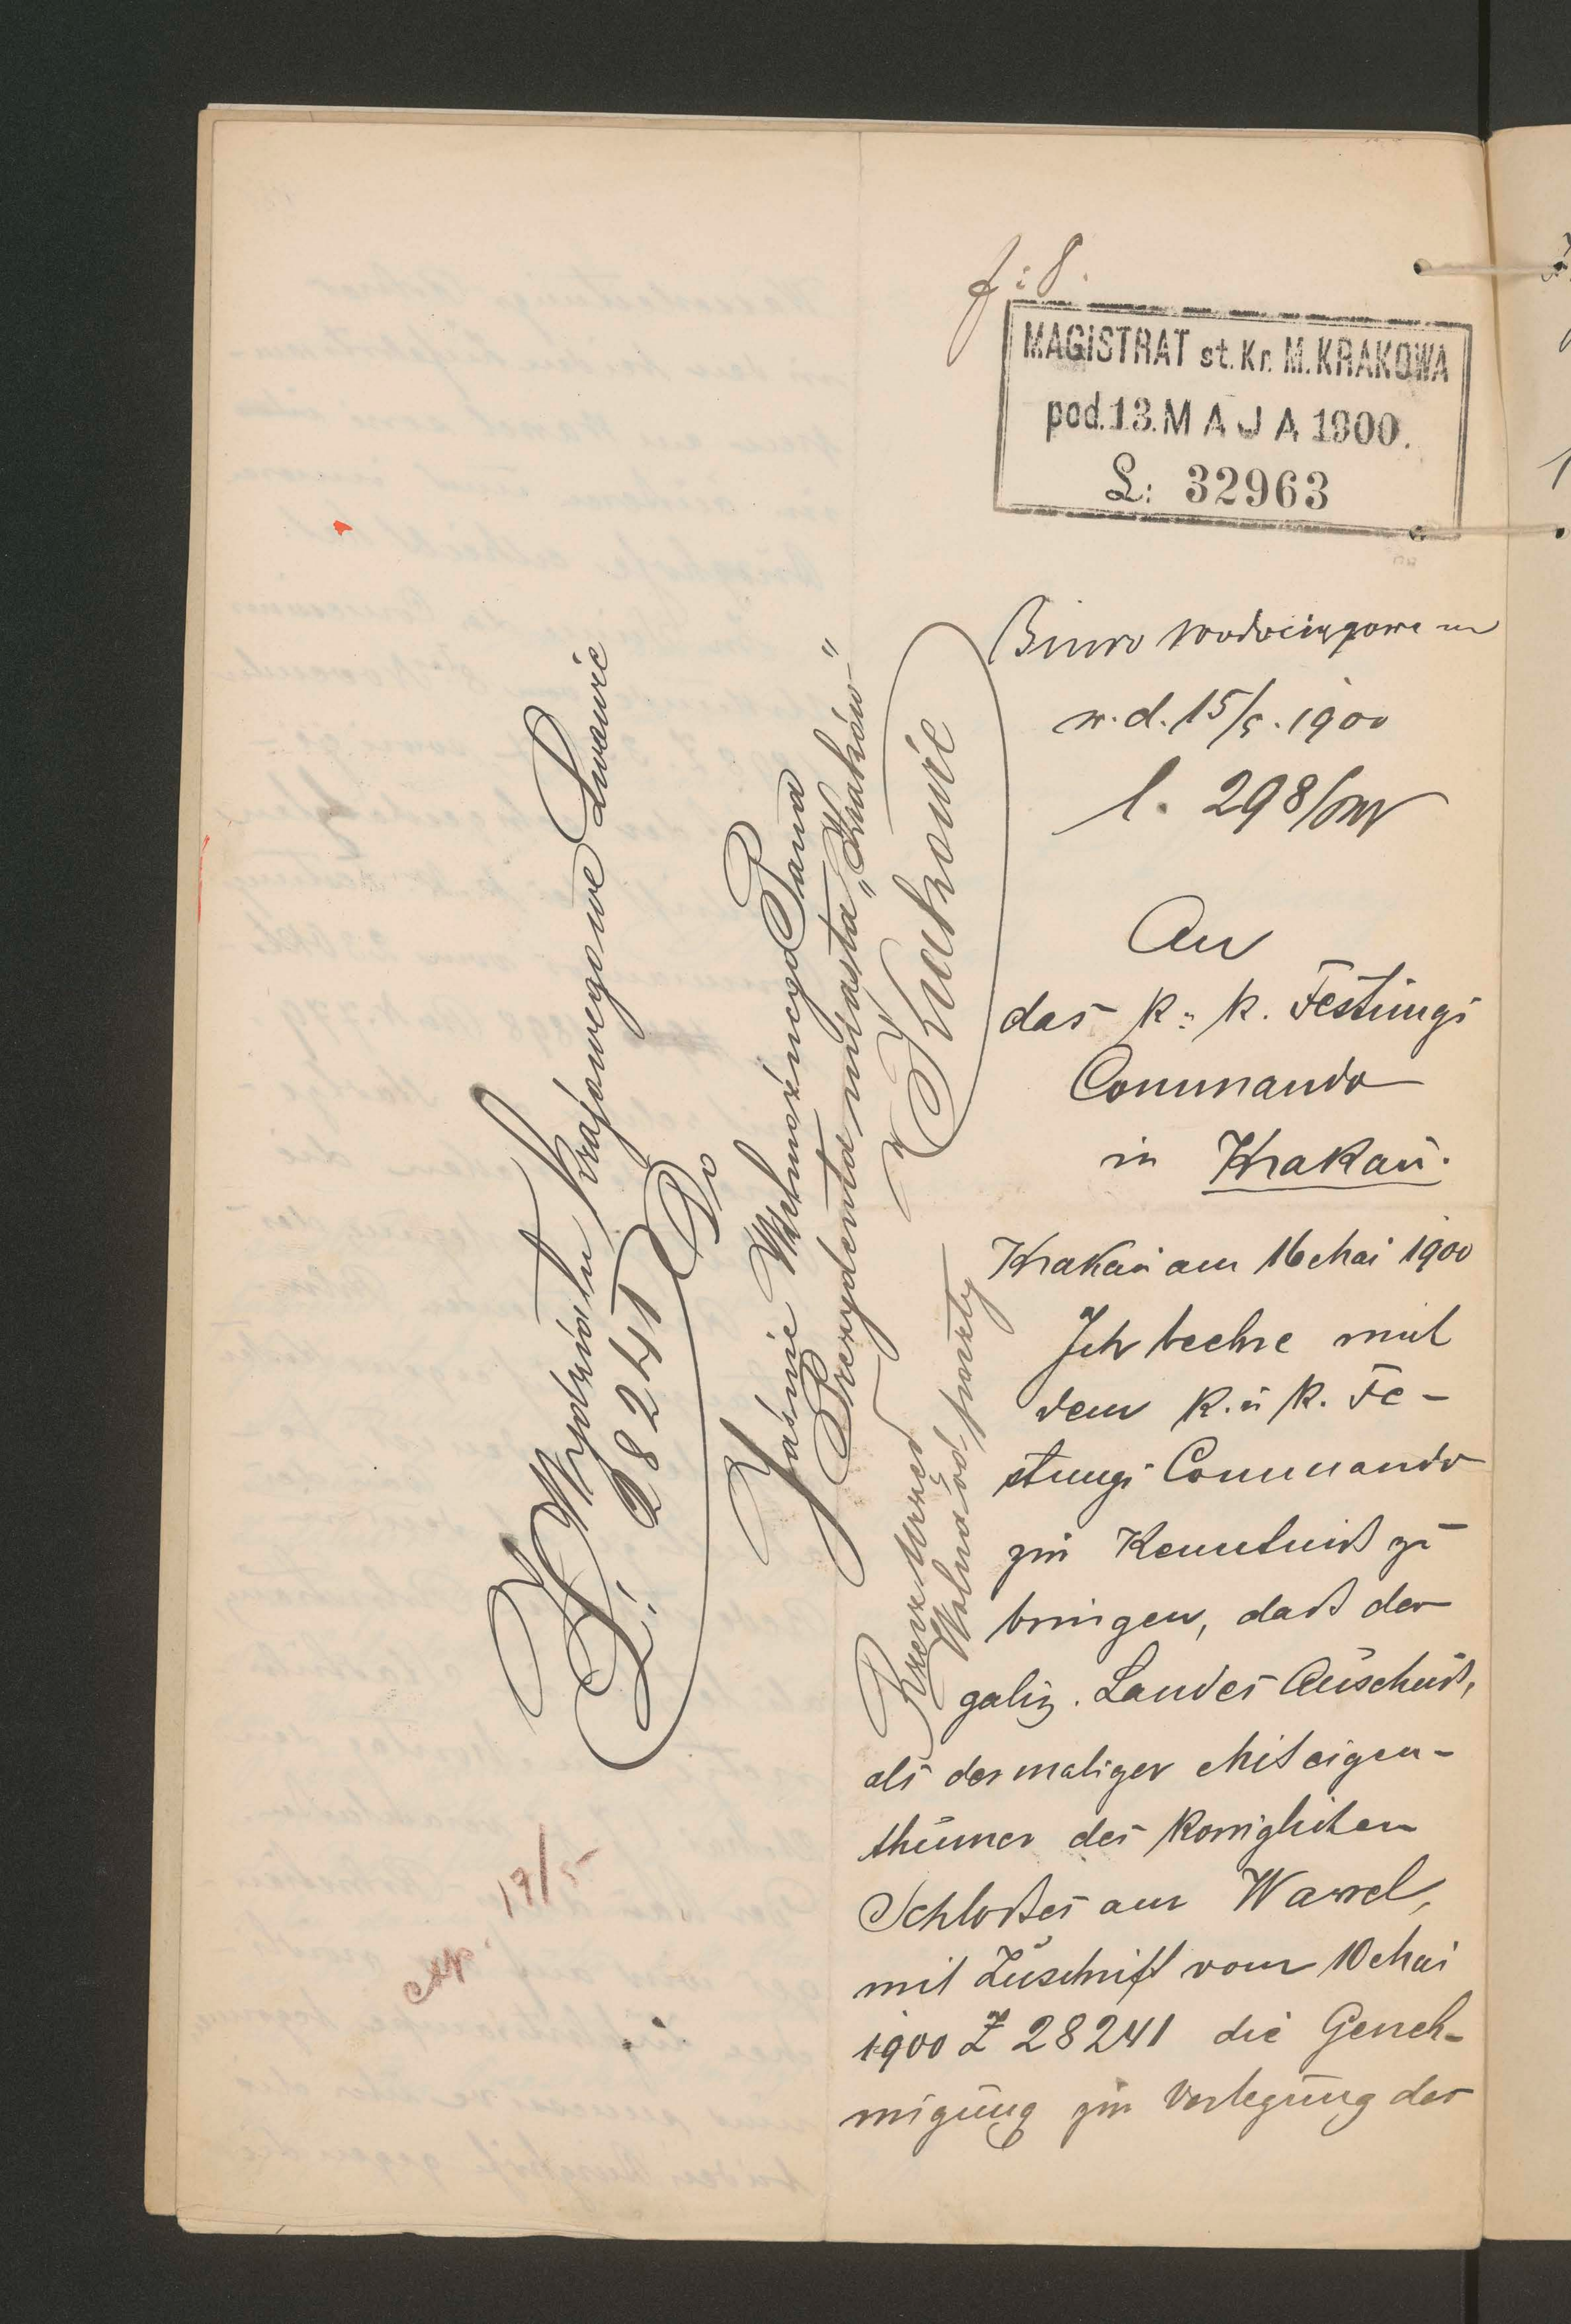 f: 8.
MAGISTRAT st. Kr. M. KRAKOWA
pod. 13. MAJA 1900.
L: 32963
Biuro wodociągowe
w. d. 15/5. 1900
l. 298/
An
das k: k. Festungs
Commando
in Krakau.
Krakau am 16 Mai 1900
Ich beehre mich
dem k. u k. Fe-
stungs Commando
zur Kenntniss zu
bringen, dass der
galiz. Landes Ausschuss,
als dermaliger Miteigen-
thümer des königlichen
Schlosses am Wawel,
mit Zuschrift vom 10 Mai
1900 Z 28241 die Geneh-
migung zur Verlegung der
Z Wydziału krajowego we Lwowie
L: 28241
Do
Jaśnie Wielmożnego Pana
Prezydenta miasta „Kraków"
w Krakowie
Rzecz Urzęd
Wolna od poczty
exp. 17/5